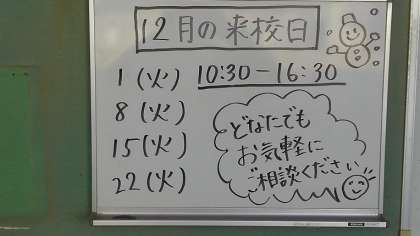 12月の来校日
1(火) 10:30-16:30
8(火)
15(火)
22(火)
どなたでも
お気軽に
ご相談ください